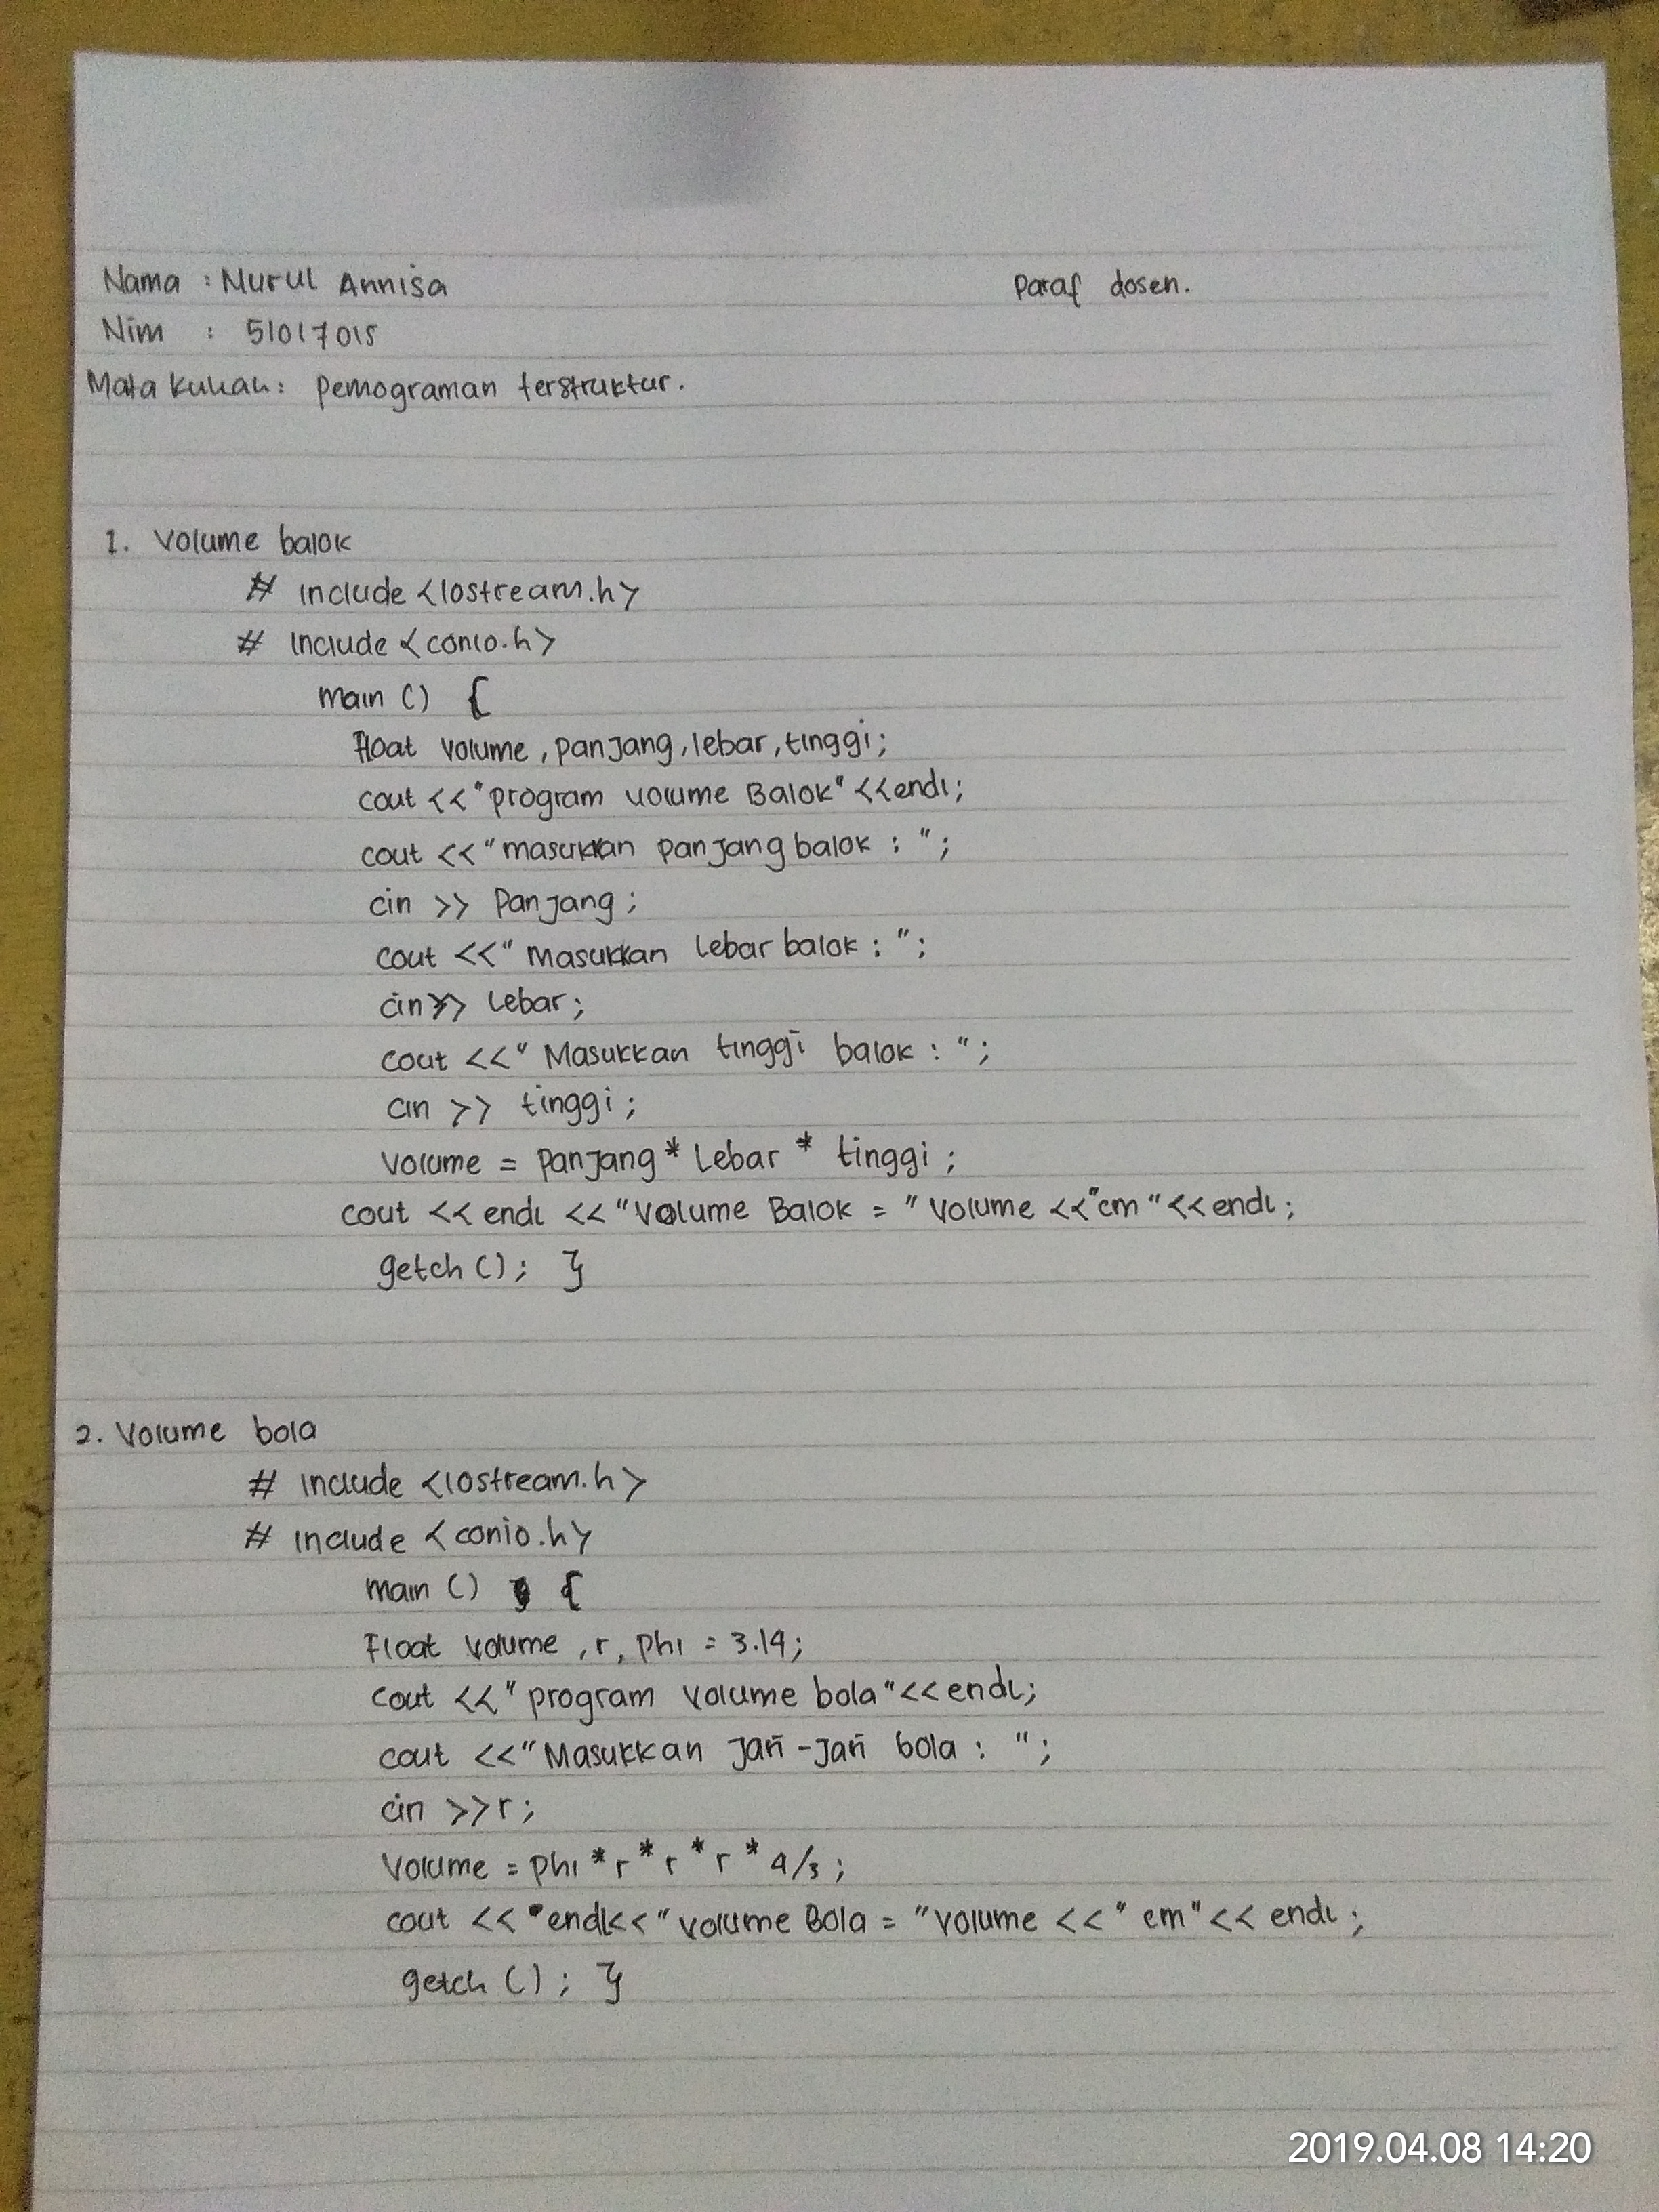 Nama : Nurul Annisa
Paraf dosen.
Nim : 51017015
Mata kuliah : Pemograman terstruktur.
1. Volume balok
# include <iostream.h>
# include <conio.h>
main () {
Float volume, panjang, lebar, tinggi;
cout <<"program volume Balok"<<endl;
cout <<"masukkan panjang balok : ";
cin >> Panjang;
cout <<" Masukkan lebar balok : ";
cin >> lebar;
cout <<" Masukkan tinggi balok : ";
cin >> tinggi;
Volume = panjang * Lebar * tinggi;
cout << endl <<"Volume Balok = " Volume <<"cm"<<endl;
getch (); }
2. Volume bola
# include <iostream.h>
# include <conio.h>
main () {
Float Volume, r, phi = 3.14;
cout <<" program volume bola"<<endl;
cout <<"Masukkan Jari-Jari bola : ";
cin >>r;
Volume = phi * r * r * r * 4/3;
cout << endl<<"Volume Bola = "Volume <<" cm"<< endl;
getch (); }
2019.04.08 14:20